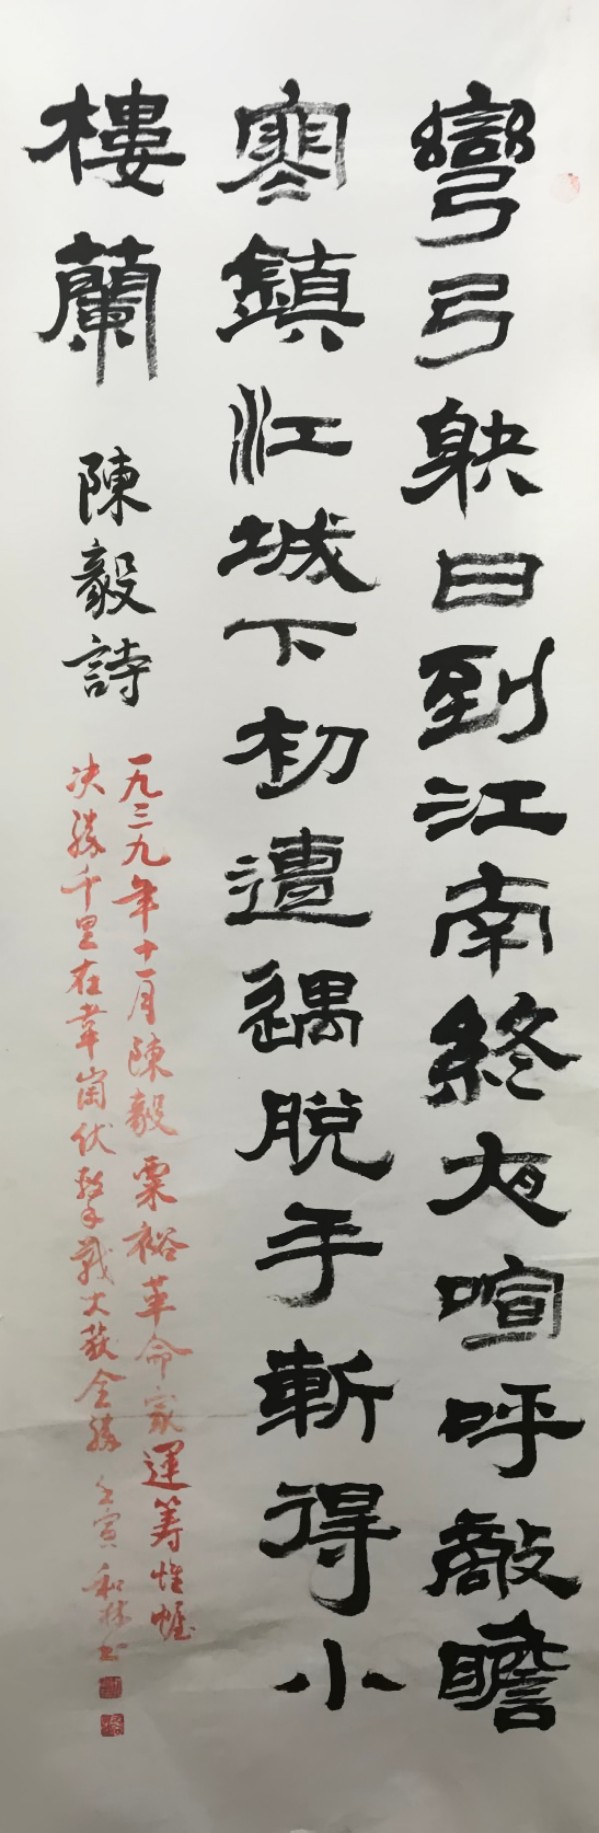 彎弓䠶日到江南終夜喧呼敵瞻
寒鎮江城下初遭遇脱手斬得小
樓蘭 陳毅詩
一九三九年十一月陳毅粟裕革命家運筹帷幄
决勝千里在韋崗伏擊戰大获全勝 壬寅 和林书